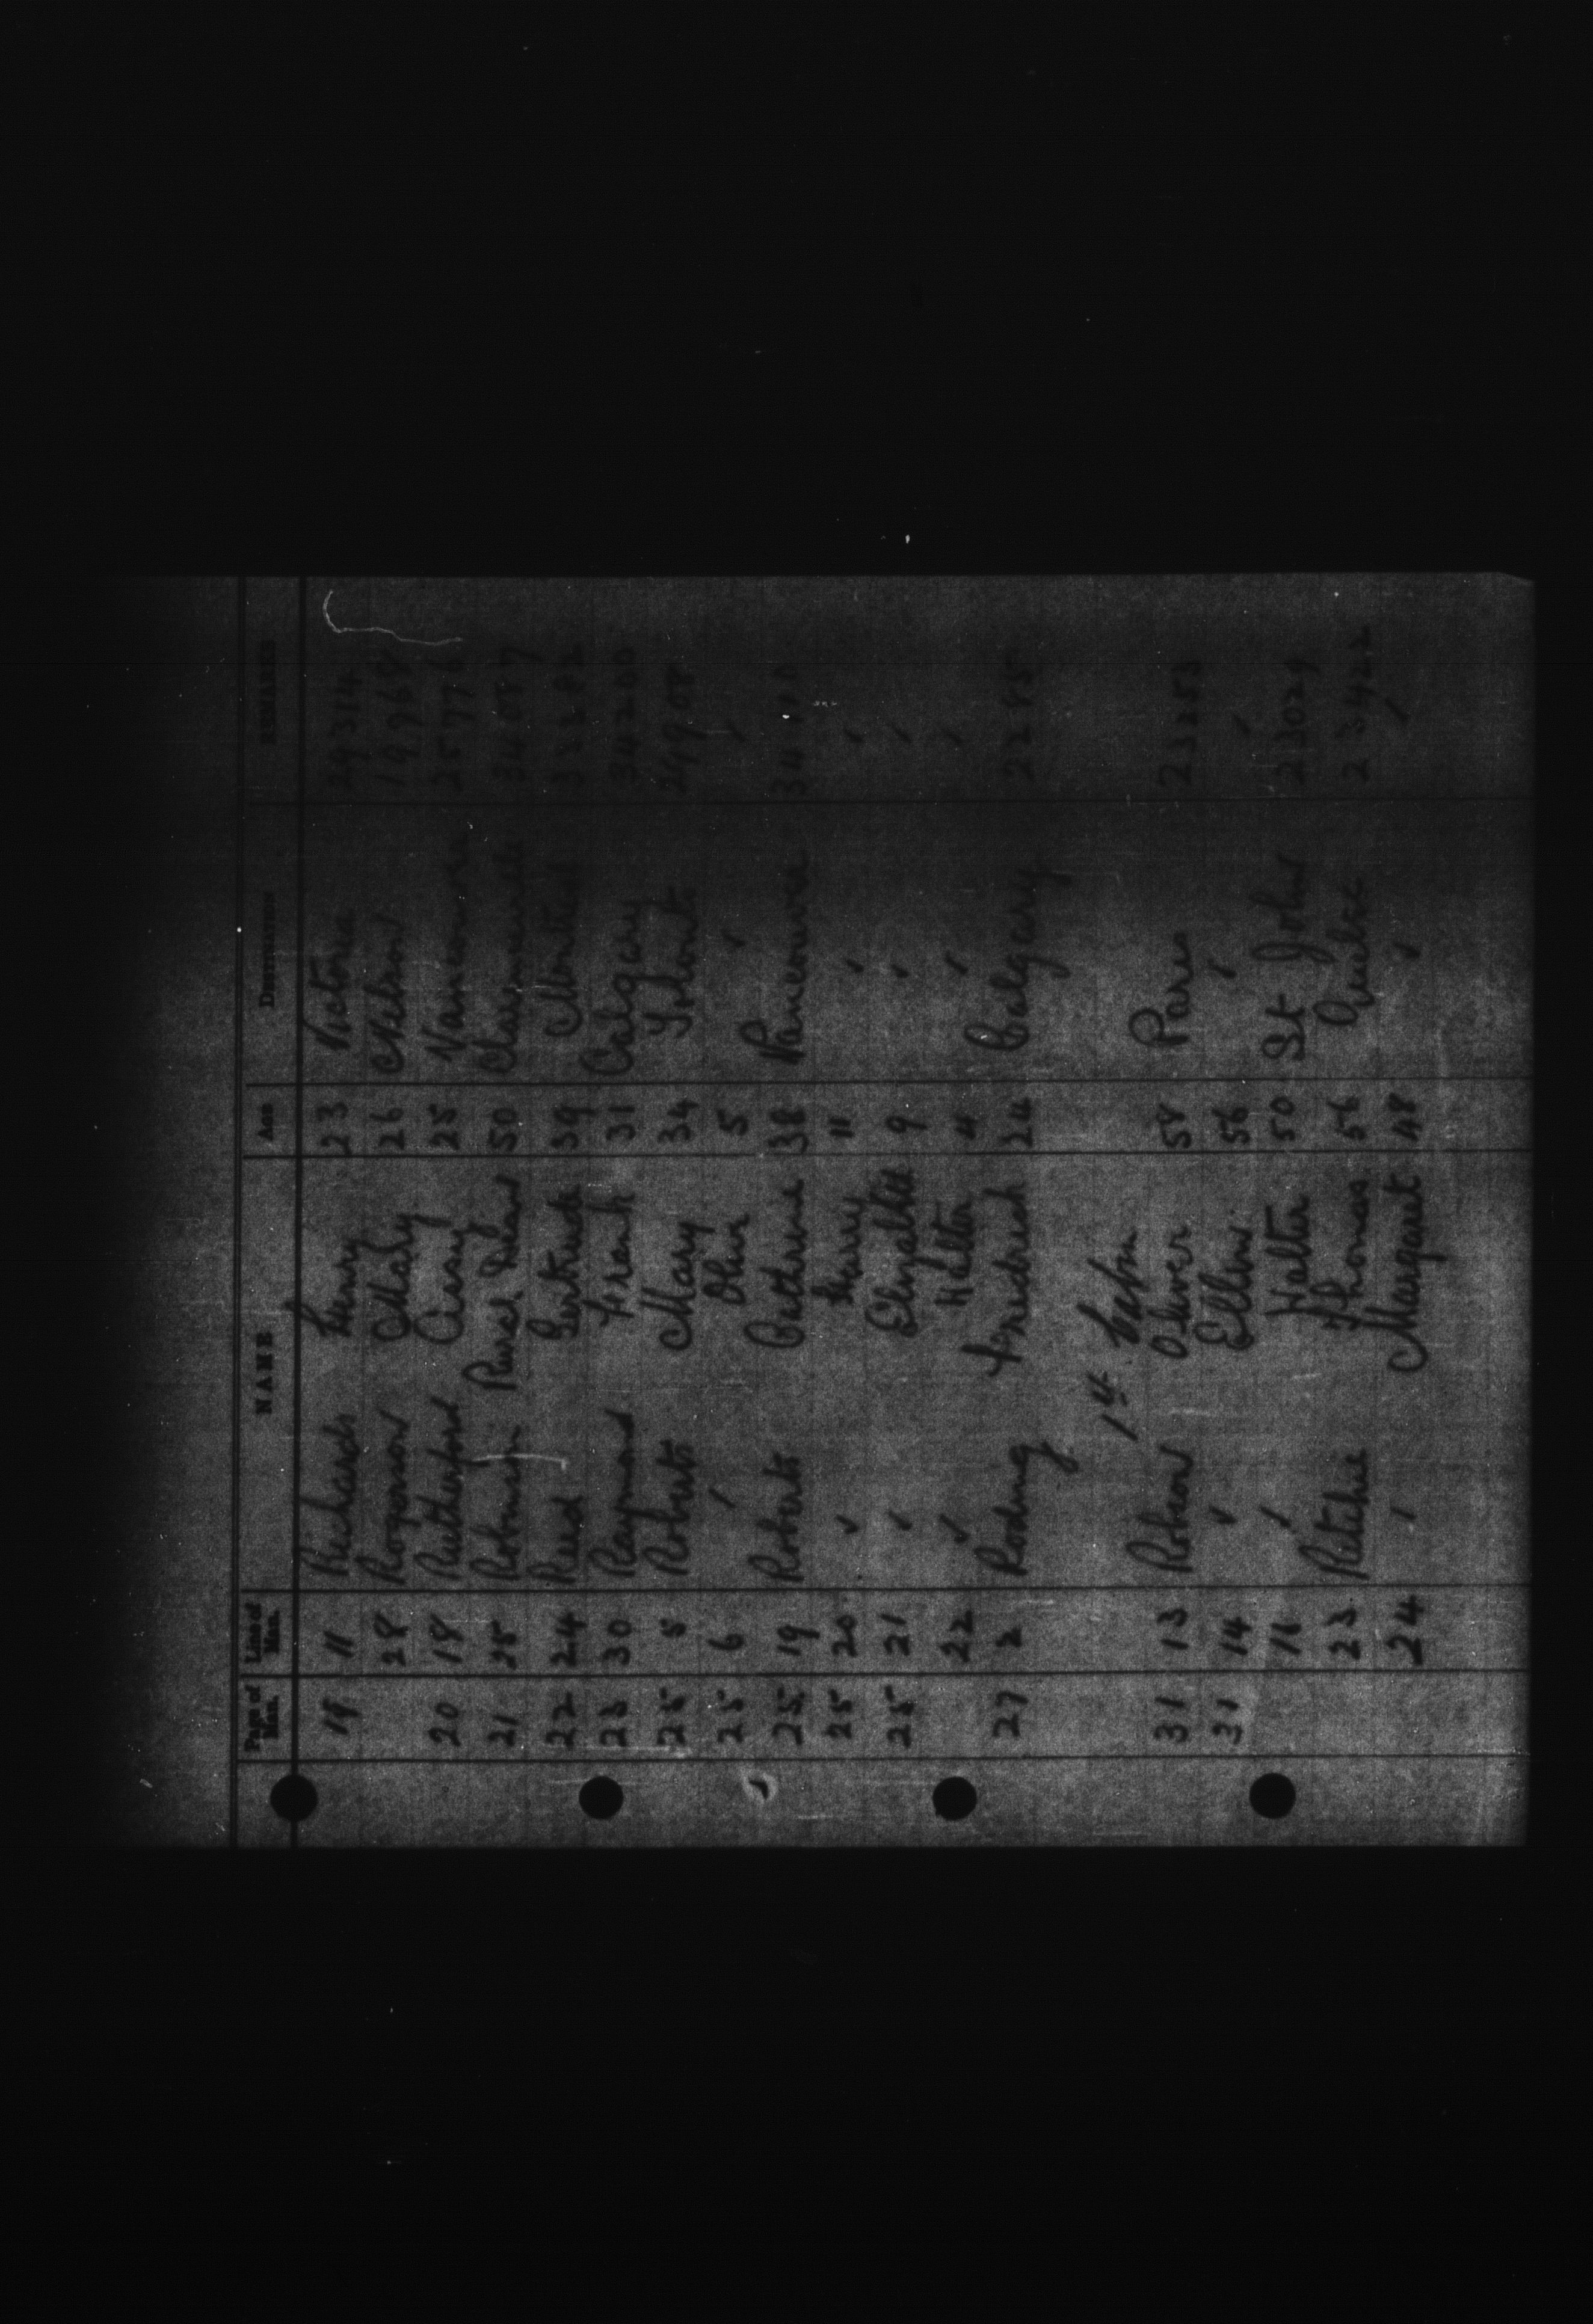 Page of Man. Line of Man. NAME AGE DESTINATION REMARKS
19 11 Richards Henry 23 Victoria 29314
28 Rogerson Mady 26 Nelson 19968
20 18 Rutherford 25 Vancouver 25776
21 25 Robinson 50
22 24 Reed Gertrude 39 Montreal
23 30 Raymond Frank 31 Calgary 34200
25 5 Roberts Mary 34 Toronto
25 6 ✓ Olive 5 ✓ ✓
25 19 Roberts Catherine 38 Vancouver
25 20 ✓ Harry 11 ✓ ✓
25 21 ✓ Elizabeth 9 ✓ ✓
22 ✓ Hilton 4 ✓ ✓
27 2 Rodny Friedrich 24 Calgary 2285
1st Cabin
31 13 Robson Oliver 58 Paris 23253
31 14 ✓ Ellen 56 ✓ ✓
16 ✓ Walter 50 St John 23029
23 Ritchie Thomas 56 Quebec 23422
24 ✓ Margaret 48 ✓ ✓